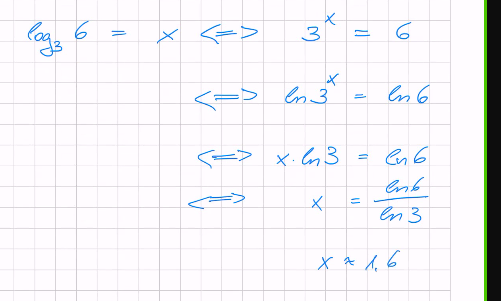 log₃ 6 = x <=> 3ˣ = 6
<=> ln 3ˣ = ln 6
<=> x · ln 3 = ln 6
<=> x = ln 6 / ln 3
x ≈ 1,6